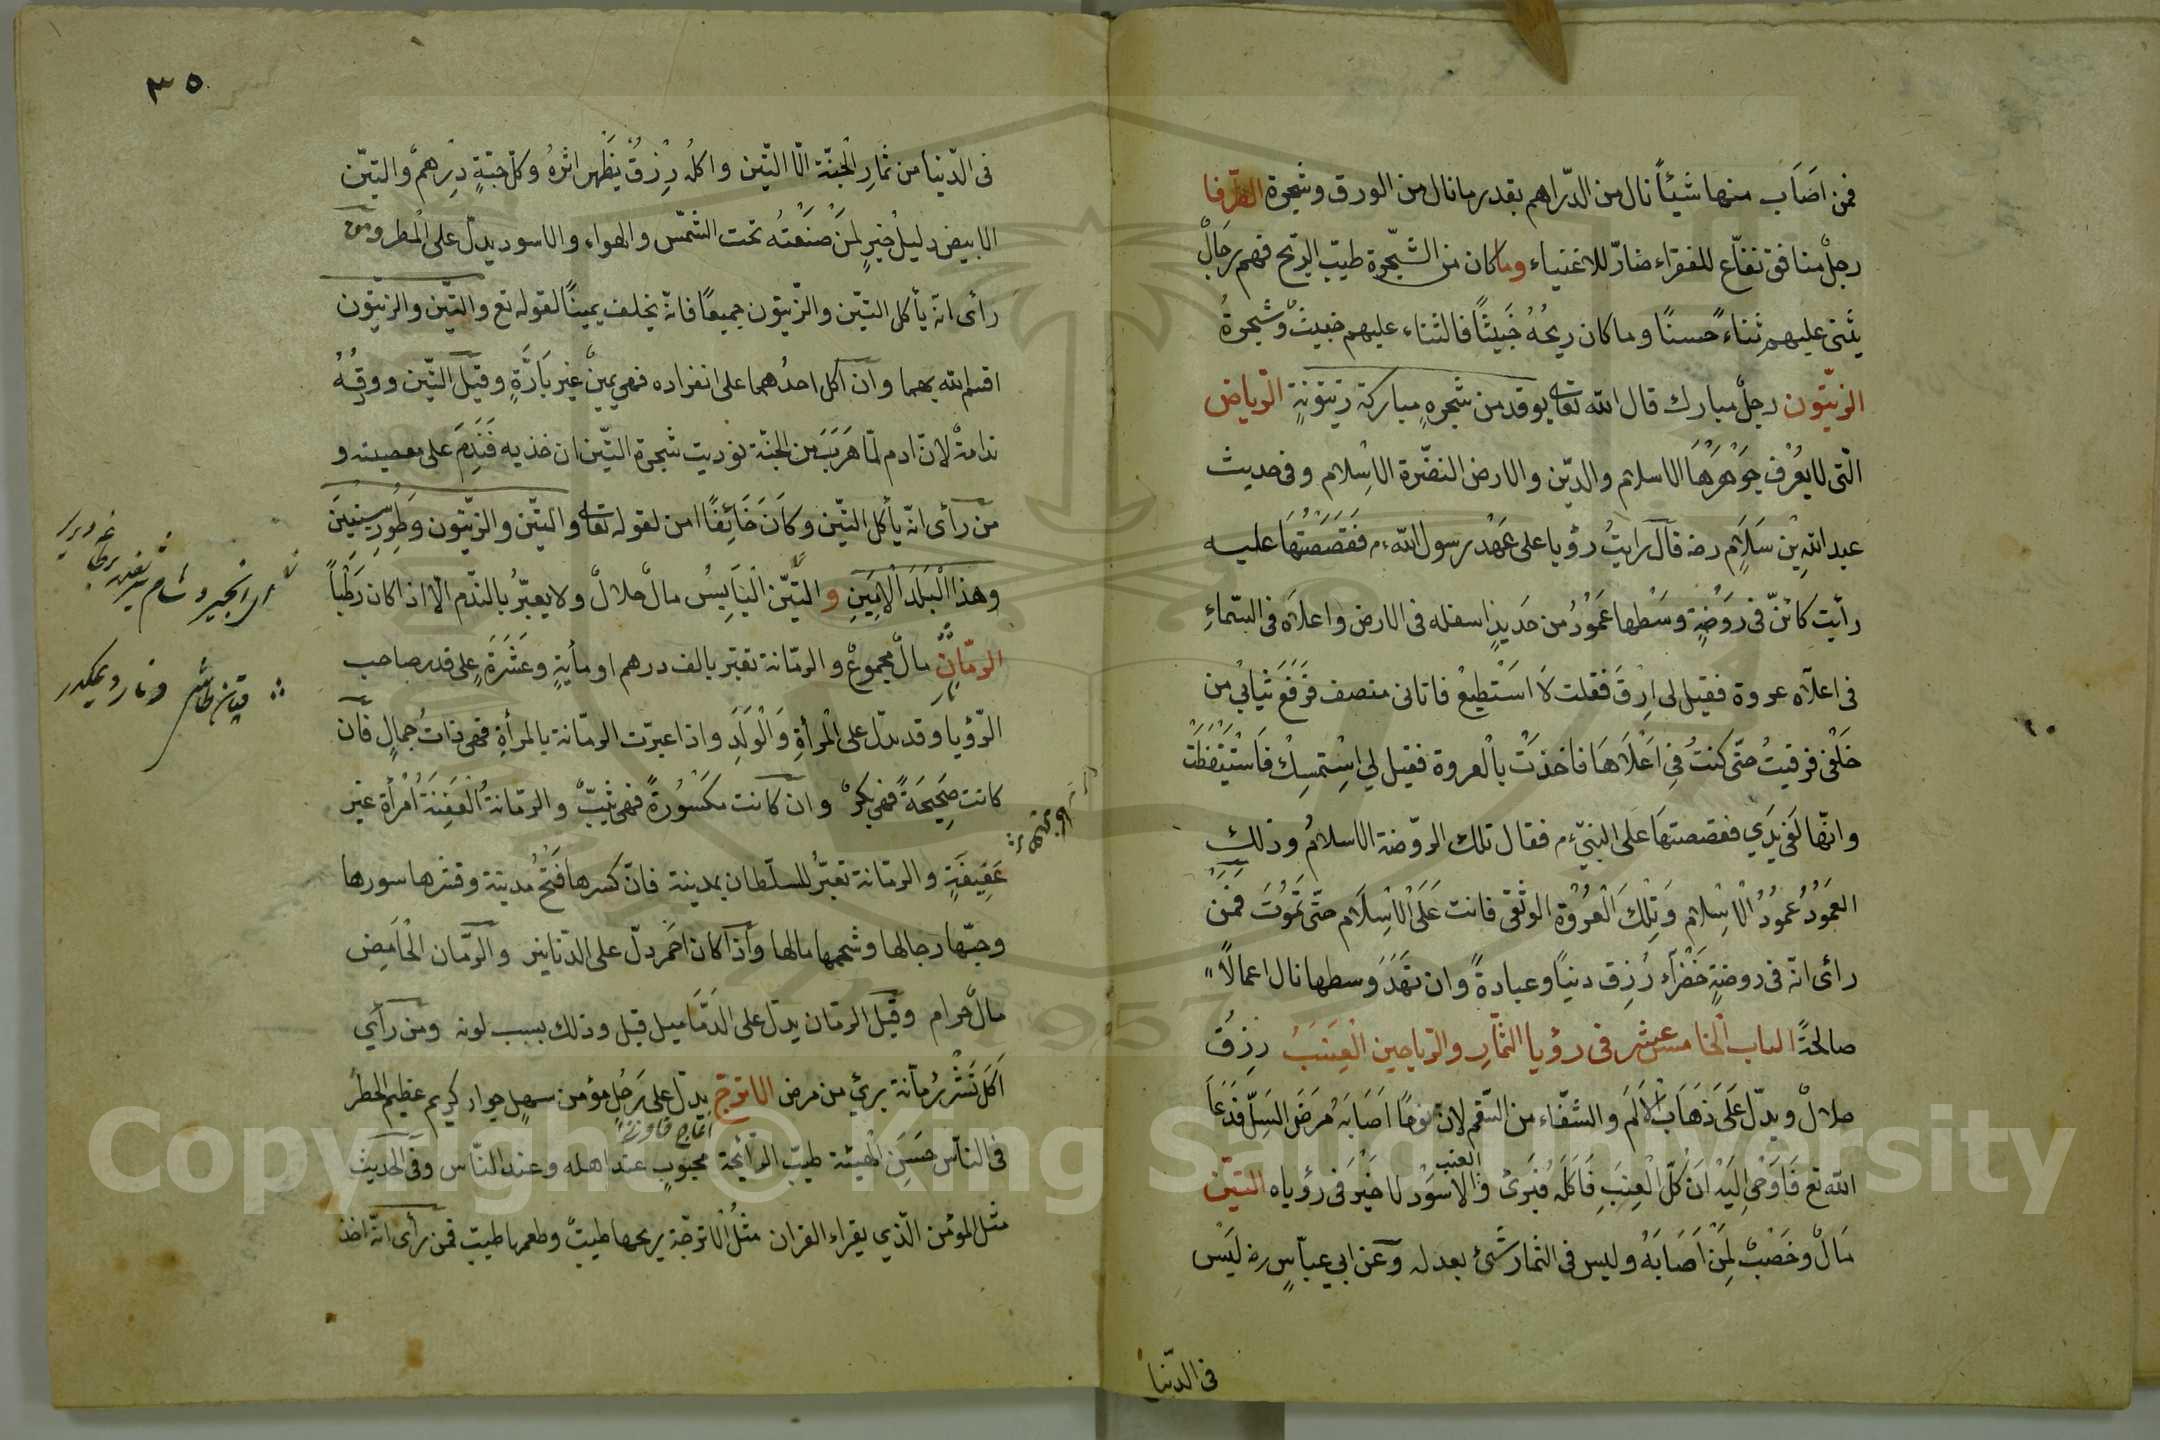 فمن اصَاب منها شيئاً نال من الدّراهم بقدر ما نال من الورق وشجرة الطّرفا
رجلٌ منافق نفّاع للفقراء ضارّ للاغنياء وما كان من الشّجرة طيّب الريّح فهم رجالٌ
يثنى عليهم ثناءً حسنًا وما كان ريحُهُ خَبيثًا فالثناء عليهم خبيثٌ وشجرةُ
الزيتون رجلٌ مبارك قال الله تعالى يوقد من شجرةٍ مباركة زيتونةٍ الرّياض
الّتى لا يعُرف جَوْهَرُهَا الاسلام والدّين والارض النضّرة الاِسْلام وفى حديث
عبد اللهِ بْن سَلَامٍ رضه قال رايتُ رؤيا على عَهْد رسول الله م فَقَصَصْتُهَا عليه
رأيت كانّ فى رَوْضةٍ وسْطها عَمُودٌ من حَديدٍ اسفله فى الارض واعلاه فى السّماءِ
فى اعلاه عروة فقيل لى ارق فقلت لاَ اسَتْطيعُ فاتانى منصف فرَفَعَ ثيابيْ من
خَلْفى فرقيتُ حتّى كنتُ فيِ اعَلْاهَا فاخذتْ بالْعروة فقيل لي اسْتمسِكْ فاَسْتَيْقَظْتُ
وانّها لَفى يدَي فقصصتهَا على النبيّ م فقال تلك الروّضة الاسلامُ وذلك
العَموُدُ عُموُدُ الْاسْلام وَتِلْك الْعُرْوُةُ الوثْقى فانت عَلَى الْاسْلَام حتّى تَموُتَ فمن
رأى انّه فى روضةٍ خَضْراَء رُزِق دينًا وعبادةً وان تهَدّ وسطها نال اعمالًا
صالحةً الباب الخامس عشر فى رؤيا الثمّارِ والرياحين الْعِنَبُ رزقٌ
حلالٌ ويدّل عَلَى ذهَاب الْالَم والشّفاء من السّقم لانّ نوحًا اصَابَهُ مرَض السّلّ فدَعَا
الله تع فَاوَحْى اِلَيْه اَنْ كُلّ الْعِنَبِ فاَكَلَهُ فبرئ والعنب الاسْوَد لا خيْرَ فى رؤياه التين
مَالٌ وخصْبٌ لِمَنْ اَصَابَهُ وليس فى الثمار شئ يعدله وعن ابى عبّاسٍ رضه ليَسْ
فى الدّنيا
٣٥
فى الدّنيا من ثمارِ الْجنّة الّا التّين واكلهُ رِزقٌ يظَهر اثرهُ وكلّ حبّةٍ درْهمٌ والتّين
الابيض دليل خيرٍ لمَنْ صَنَعْتُه تحت الشمّس والهواء والاسود يدلّ على المْطر ومن
رأى انّه يأكل التيّن والزّيتوُن جميعًا فانهّ يحلف يمينًا لقوله تع والتيّن والزيتوُن
اقسم الله بهما وان اكل احدُهما على انفراده فهي يمينٌ غير بَارّةٍ وقيل التّين وورقُهُ
ندامةٌ لانّ ادم لمّا هَرَبَ من الجنّة نوديت شجرة التّين ان خذيه فَنَدِمَ على معصيته و
من رأى انّه يأكل التيّن وكاَنَ خَائِفًا امن لقوله تعالى والتيّن والزيّتون وَطُورِ سِينينَ
وهذا الْبَلَدِ الْامَينِ و التيّن الْيَابِسُ مالٌ حلالٌ ولا يعبّرُ بالندّم الّا اذا كان رَطْبًا
الرمّان مالٌ مجموعٌ والرمّانة تعبّر بالف درهم او مأيةٍ وعَشَرَةٍ على قدر صاحب
الرّؤيا وقد يدّل على الْمرأةِ وَالْوَلَدِ واذا عبّرت الرمّانة بالمرأةِ فهى ذاتُ جمالٍ فان
كانت صَحيَحةً فهي بكرٌ وان كانت مكسْوُرةً فهى ثيّبٌ والرمّانةُ الْعَفِنَةُ امْرأة غير
عَفيِفَةٍ والرمّانة تعبّرُ للسلّطان بمدينة فانّ كسرها فَتْحُ مدينة وقشرها سورها
وحبّها رجالها وشحمها مالها واذا كان احَمر دلّ على الدنّانير والرمّان الْحاَمِض
مالٌ حرام وقيل الرمّان يدّل على الدّمَاميل قبل وذلك بسبب لونه ومن رأي
اَكَل قشْر رمّانة برئ من مرض الاترجّ يدّل على رَجُلٍ مؤمن سهلٍ جوادٍ كريم عظيم الخطر
فى الناّس حَسَنِ الْهيئة طيبّ الراّئحة محبوبٍ عند اهله وعند الناّس وفى الحديث
مثل المؤمن الّذي يقراء القران مثلُ الْاترجّة ريحها طيبٌ وطعمها طيبّ فمن رأى انّه اخذ
Copyright © King Saud University
1957